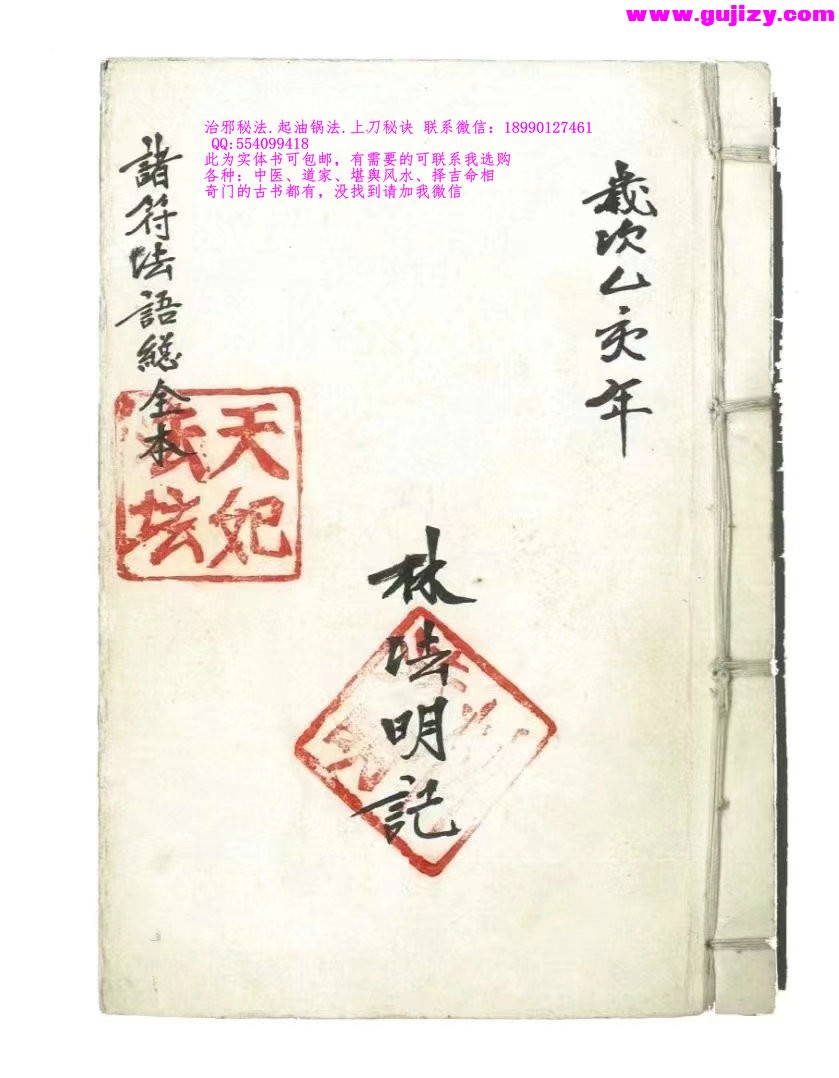 www.gujizy.com
治邪秘法.起油锅法.上刀秘诀 联系微信: 18990127461
QQ:554099418
此为实体书可包邮，有需要的可联系我选购
各种; 中医、道家、堪舆风水、择吉命相
奇门的古书都有，没找到请加我微信
歲次乙亥年
林法明記
諸符法語總全本
天妃
法坛